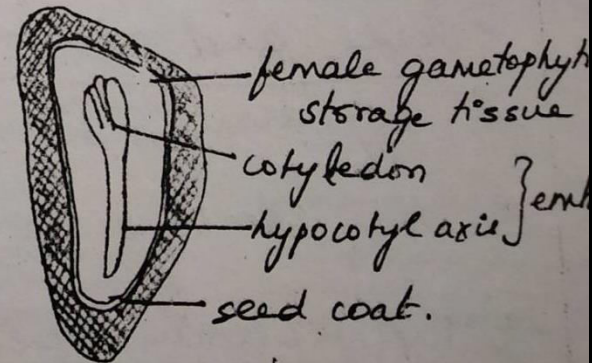 female gametophyt
storage tissue
cotyledon
hypocotyl axis
seed coat.